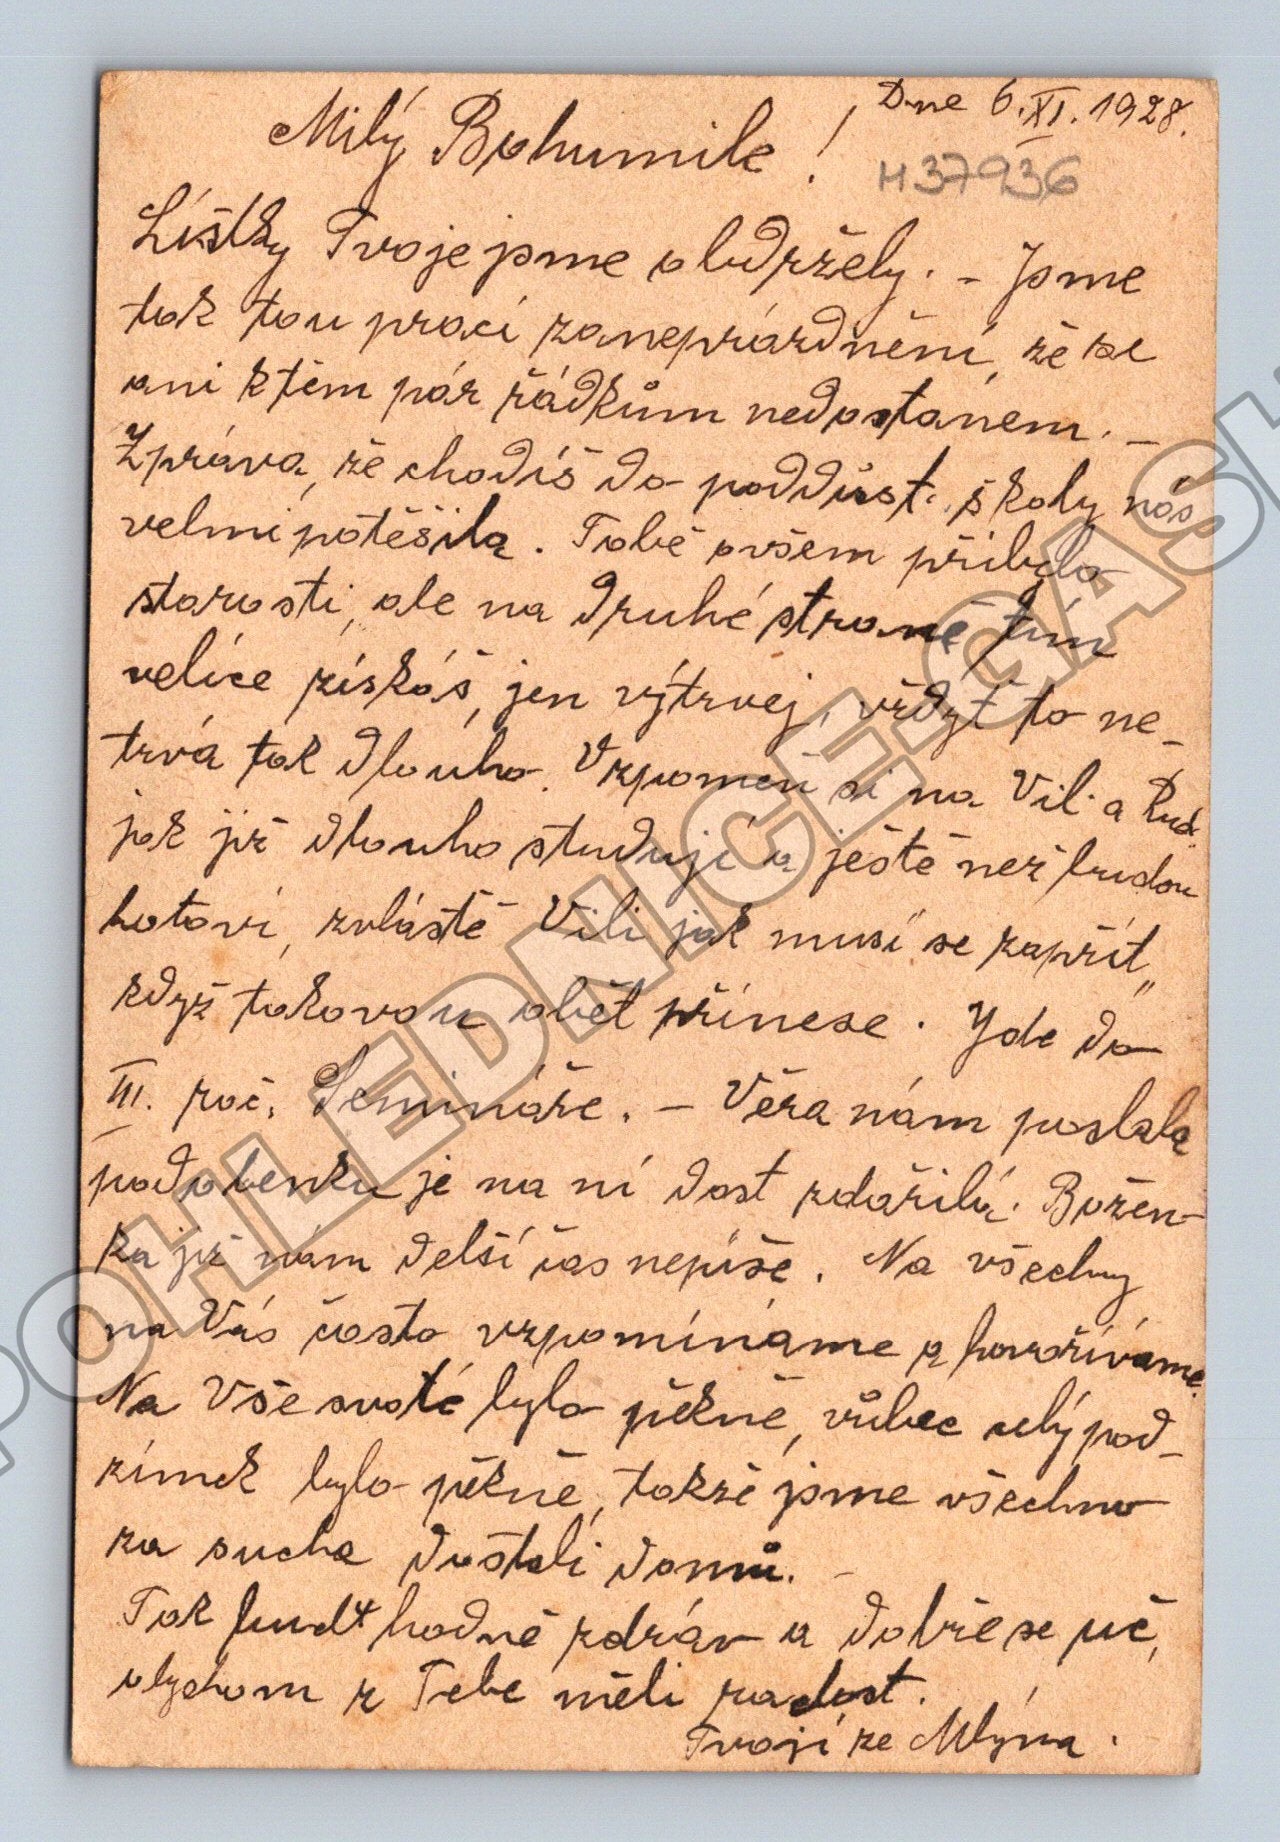 Dne 6. XI. 1928.
Milý Bohumile!
H 37936
Lístky Tvoje jsme obdržely. - Jsme
tak tou prací zaneprázdnění, že se
ani k těm pár řádkům nedostanem. -
Zpráva, že chodíš do poddůst. školy nás
velmi potěšila. Tobě ovšem přibylo
starosti, ale na druhé straně tím
velice získáš, jen výtrvej, vždyť to ne-
trvá tak dlouho. Vzpomeň si na Vil. a Rud.
jak již dlouho studují a ještě než budou
hotovi, zvláště Vili jak musí se zapřít,
když takovou oběť přinese. Jde do
III. roč. Semináře. - Věra nám poslala
podobenku je na ní dost zdařilá. Božen-
ka již nám delší čas nepíše. Na všechny
na Vás často vzpomínáme a hovoříváme.
Na Všesvaté bylo pěkně, vůbec celý pod-
zimek bylo pěkně, takže jsme všechno
za sucha dostali domů. -
Tak buď hodně zdráv a dobře se uč,
abychom z Tebe měli radost.
Tvoji ze Mlýna.
POHLEDNICE.GASH